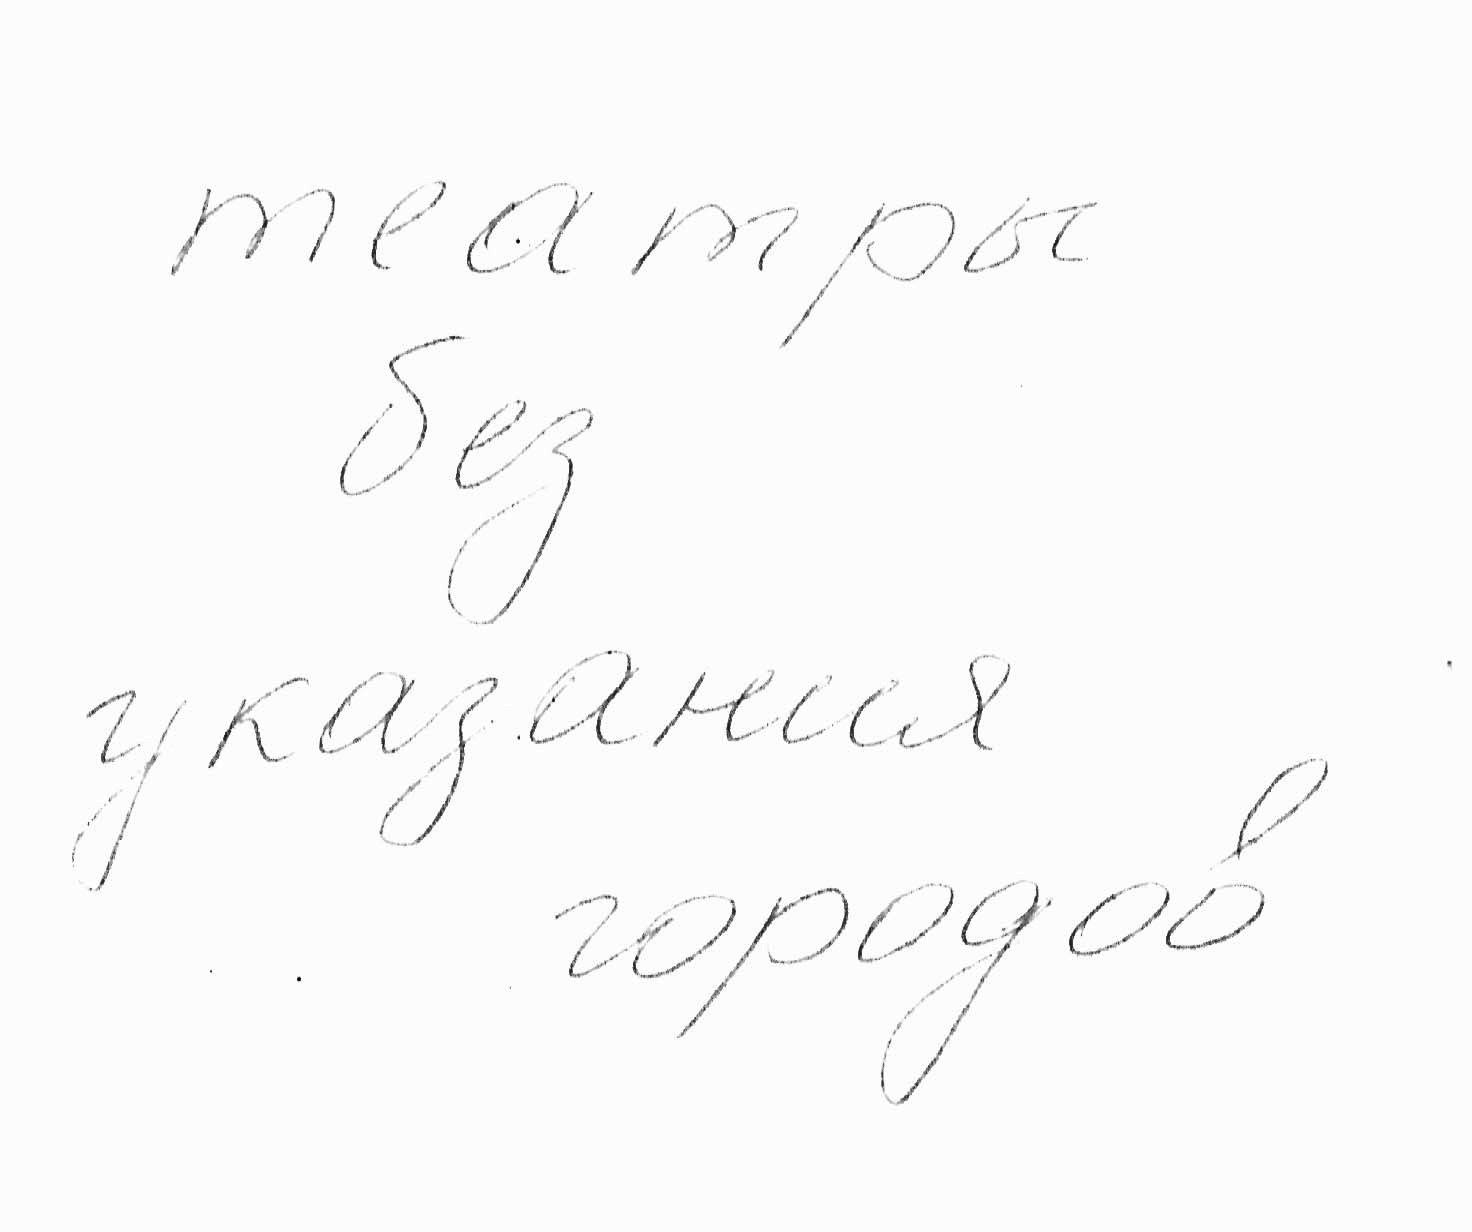 театры
без
указания
городов